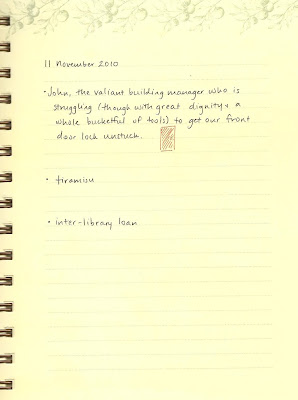 11 november 2010
• John, the valiant building manager who is
struggling (though with great dignity & a
whole bucketful of tools) to get our front
door lock unstuck.
• tiramisu
• inter-library loan